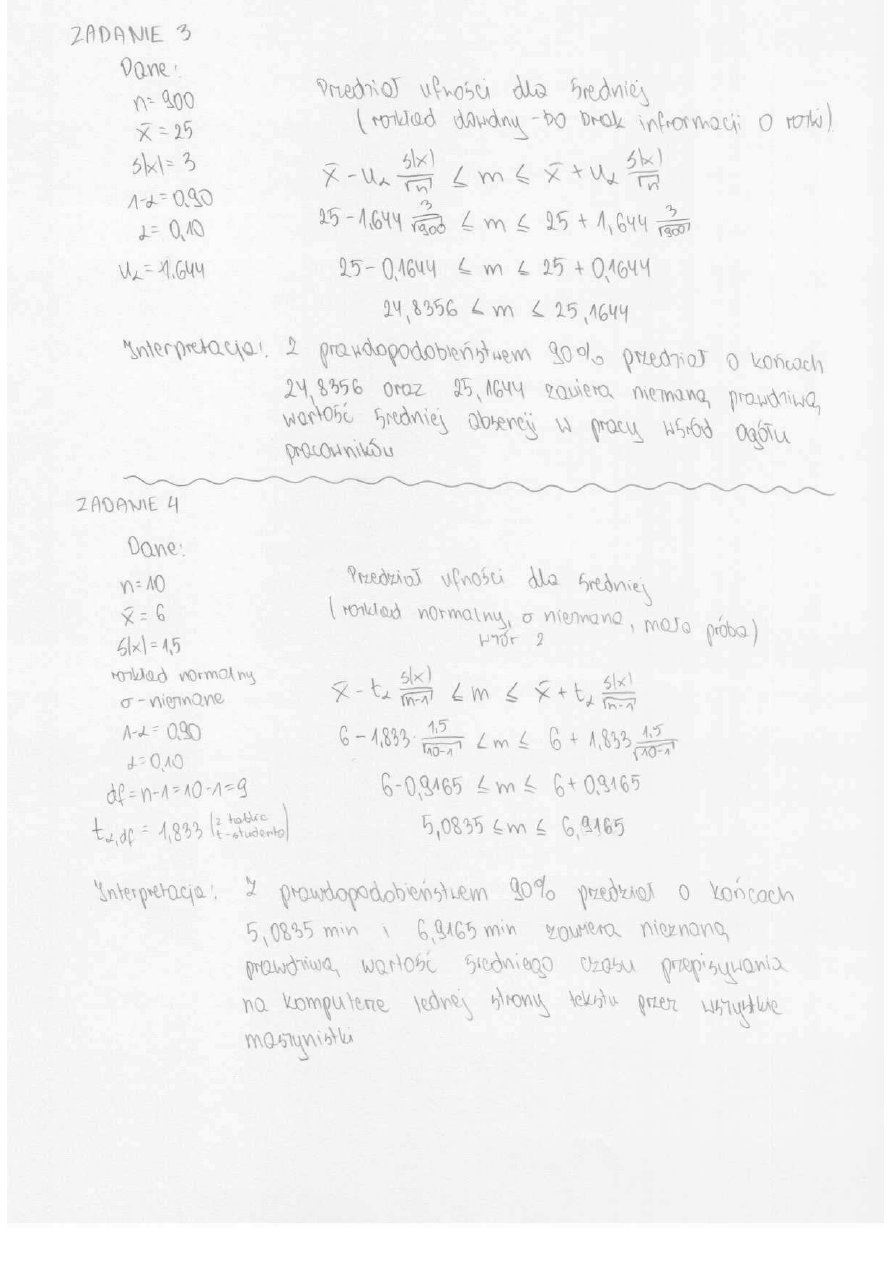 ZADANIE 3
Dane:
n=900
x̄ = 25
s(x)= 3
1-α=0,90
α= 0,10
uα=1.644
Przedział ufności dla średniej
(rozkład dowolny - bo brak informacji o rozkł)
x̄ - uα s(x)/√n ≤ m ≤ x̄ + uα s(x)/√n
25 - 1.644 3/√900 ≤ m ≤ 25 + 1,644 3/√900
25 - 0,1644 ≤ m ≤ 25 + 0,1644
24,8356 ≤ m ≤ 25,1644
Interpretacja: Z prawdopodobieństwem 90% przedział o końcach
24,8356 oraz 25,1644 zawiera nieznaną prawdziwą
wartość średniej absencji w pracy wśród ogółu
pracowników
ZADANIE 4
Dane:
n=10
x̄ = 6
s(x)=1,5
rozkład normalny
σ-nieznane
1-α=0,90
α=0,10
df=n-1=10-1=9
tα,df = 1,833 (z tablic t-studenta)
Przedział ufności dla średniej
(rozkład normalny, σ nieznana, mała próba)
wzór 2
x̄ - tα s(x)/√n-1 ≤ m ≤ x̄ + tα s(x)/√n-1
6 - 1,833 · 1,5/√10-1 ≤ m ≤ 6 + 1,833 1,5/√10-1
6-0,9165 ≤ m ≤ 6+0,9165
5,0835 ≤ m ≤ 6,9165
Interpretacja: Z prawdopodobieństwem 90% przedział o końcach
5,0835 min i 6,9165 min zawiera nieznaną
prawdziwą wartość średniego czasu przepisywania
na komputerze jednej strony tekstu przez wszystkie
maszynistki